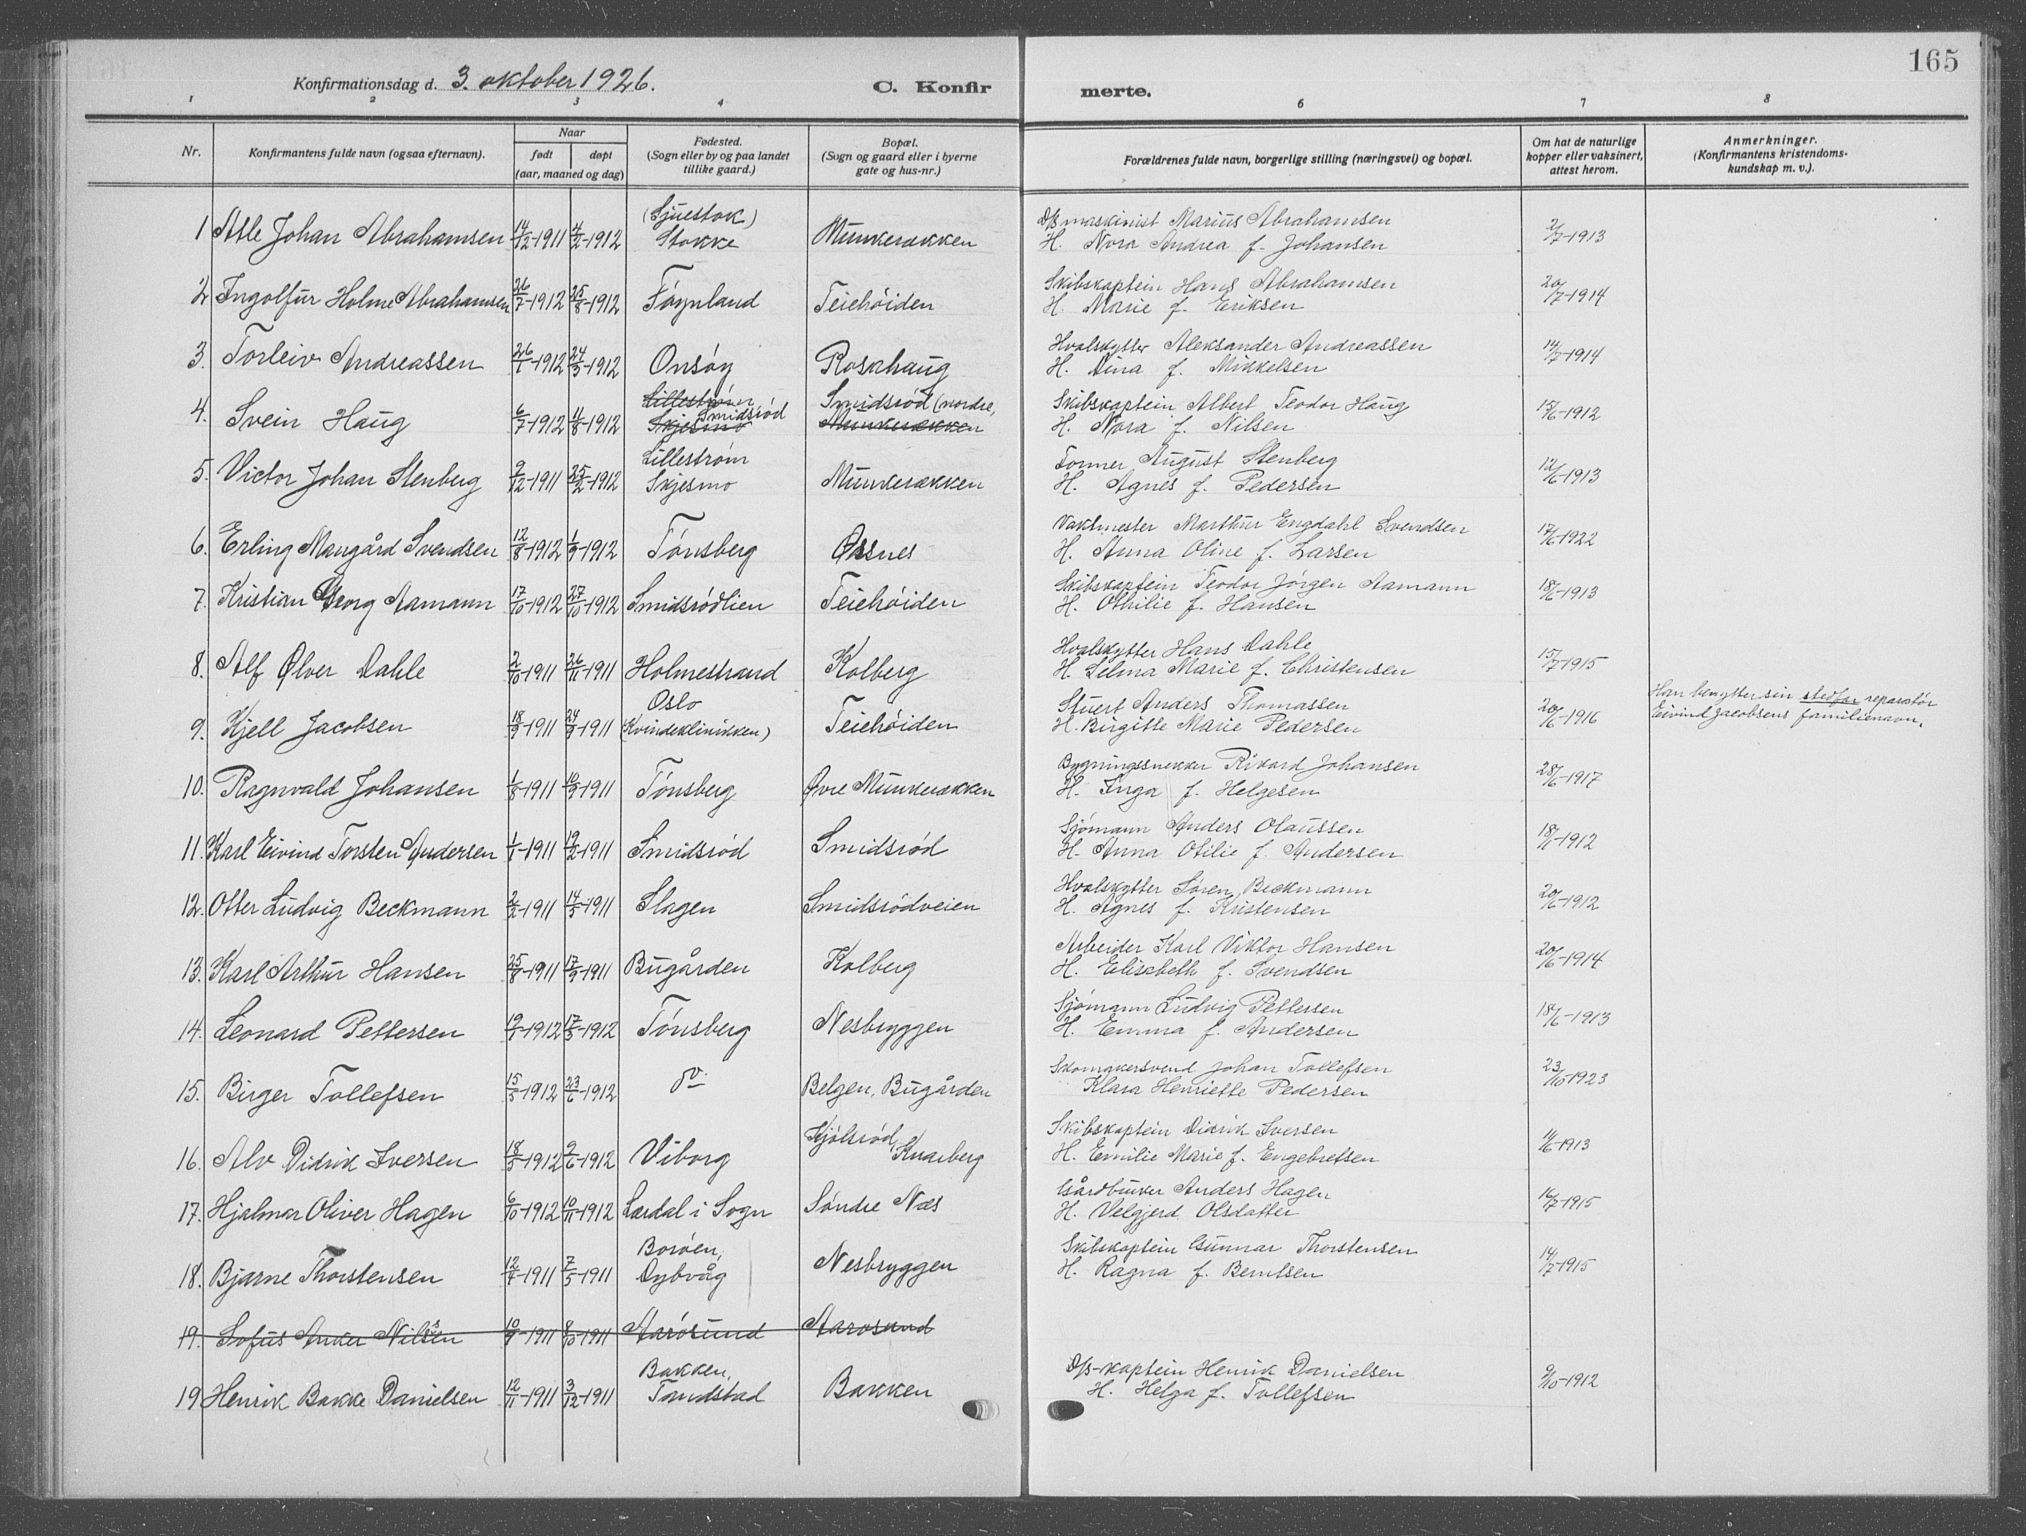 165
Konfirmationsdag d. 3. oktober 1926. C. Konfir merte.
1 2 3 4 6 7 8
Nr. Konfirmantens fulde navn (ogsaa efternavn). Naar født døpt (aar, maaned og dag) Fødested. (Sogn eller by og paa landet tillike gaard.) Bopæl. (Sogn og gaard eller i byerne gate og hus-nr.) Forældrenes fulde navn, borgerlige stilling (næringsvei) og bopæl. Om hat de naturlige kopper eller vaksinert, attest herom. Anmerkninger. (Konfirmantens kristendoms-kundskap m. v.).
1 Atle Johan Abrahamsen 14/12-1911 4/2-1912 (Sjuestok) Stokke Munkerækken D/S maskinist Marius Abrahamsen 2/7-1913
H. Nora Andrea f. Johansen
2 Ingolfur Holme Abrahamsen 26/7-1912 25/8-1912 Føynland Teiehøiden Skibskaptein Hans Abrahamsen 20/7-1914
H. Marie f. Eriksen
3. Torleiv Andreassen 26/1-1912 24/3-1912 Onsøy Rosahaug Hvalskytter Aleksander Andreassen 14/7-1914
H. Dina f. Mikkelsen
4. Svein Haug 6/7-1912 4/8-1912 Lillestrøm Skjesmo Smidsrød Smidsrød (nordre, Munkerækken Skibskaptein Albert Teodor Haug 15/6-1912
H. Nora f. Nilsen
5. Victor Johan Stenberg 9/12-1911 25/2-1912 Lillestrøm Skjesmo Munkerækken Former August Stenberg 12/6-1913
H. Agnes f. Pedersen
6. Erling Mangård Svendsen 12/8-1912 1/9-1912 Tønsberg Ørsnes Vaktmester Marthur Engdahl Svendsen 17/6-1922
H. Anna Oline f. Larsen
7. Kristian Georg Aamann 17/10-1912 27/10-1912 Smidsrødlien Teiehøiden Skibskaptein Teodor Jørgen Aamann 18/6-1913
H. Othilie f. Hansen
8. Alf Ølver Dahle 2/10-1911 26/11-1911 Holmestrand Kolberg Hvalskytter Hans Dahle 15/7-1915
H. Selma Marie f. Christensen
9. Kjell Jacobsen 18/9-1911 24/9-1911 Oslo (Kvindeklinikken) Teiehøiden Stuert Anders Thomassen 20/6-1916 Han benytter sin stedfar reparatør
H. Birgitte Marie Pedersen Eivind Jacobsens familienavn.
10. Ragnvald Johansen 1/8-1911 10/9-1911 Tønsberg Øvre Munkerækken Bygningssnekker Rikard Johansen 28/6-1917
H. Inga f. Helgesen
11. Karl Eivind Torsten Andersen 1/1-1911 19/2-1911 Smidsrød Smidsrød Sjømann Anders Olaussen 18/1-1912
H. Anna Otilie f. Andersen
12. Otter Ludvig Beckmann 2/2-1911 14/5-1911 Slagen Smidsrødveien Hvalskytter Søren Beckmann 20/6-1912
H. Agnes f. Kristensen
13. Karl Arthur Hansen 25/8-1911 17/9-1911 Bugården Kolberg Arbeider Karl Viktor Hansen 20/6-1914
H. Elisabeth f. Svendsen
14. Leonard Pettersen 19/1-1912 17/3-1912 Tønsberg Nesbryggen Sjømann Ludvig Pettersen 18/6-1913
H. Emma f. Andersen
15. Birger Tollefsen 15/5-1912 23/6-1912 do. Belgen, Bugården Skomakersvend Johan Tollefsen 23/10-1923
Klara Henriette Pedersen
16. Alv Didrik Iversen 18/5-1912 9/6-1912 Viborg Kjølsrød, Knarberg Skibskaptein Didrik Iversen 11/6-1913
H. Emilie Marie f. Engebretsen
17. Hjalmar Oliver Hagen 6/10-1912 10/11-1912 Lærdal i Sogn Søndre Næs Gårdbruker Anders Hagen 16/7-1915
H. Velgjerd Olsdatter
18. Bjarne Thorstensen 12/4-1911 7/5-1911 Borøen, Dybvåg Nesbryggen Skibskaptein Gunnar Thorstensen 14/7-1915
H. Ragna f. Berntsen
19. Sofus Anker Nilsen 10/9-1911 8/10-1911 Aarøsund Aarøsund
19 Henrik Bakke Danielsen 12/11-1911 3/12-1911 Bakken, Tandstad Bakken D/S-kaptein Henrik Danielsen 9/10-1912
H. Helga f. Tollefsen